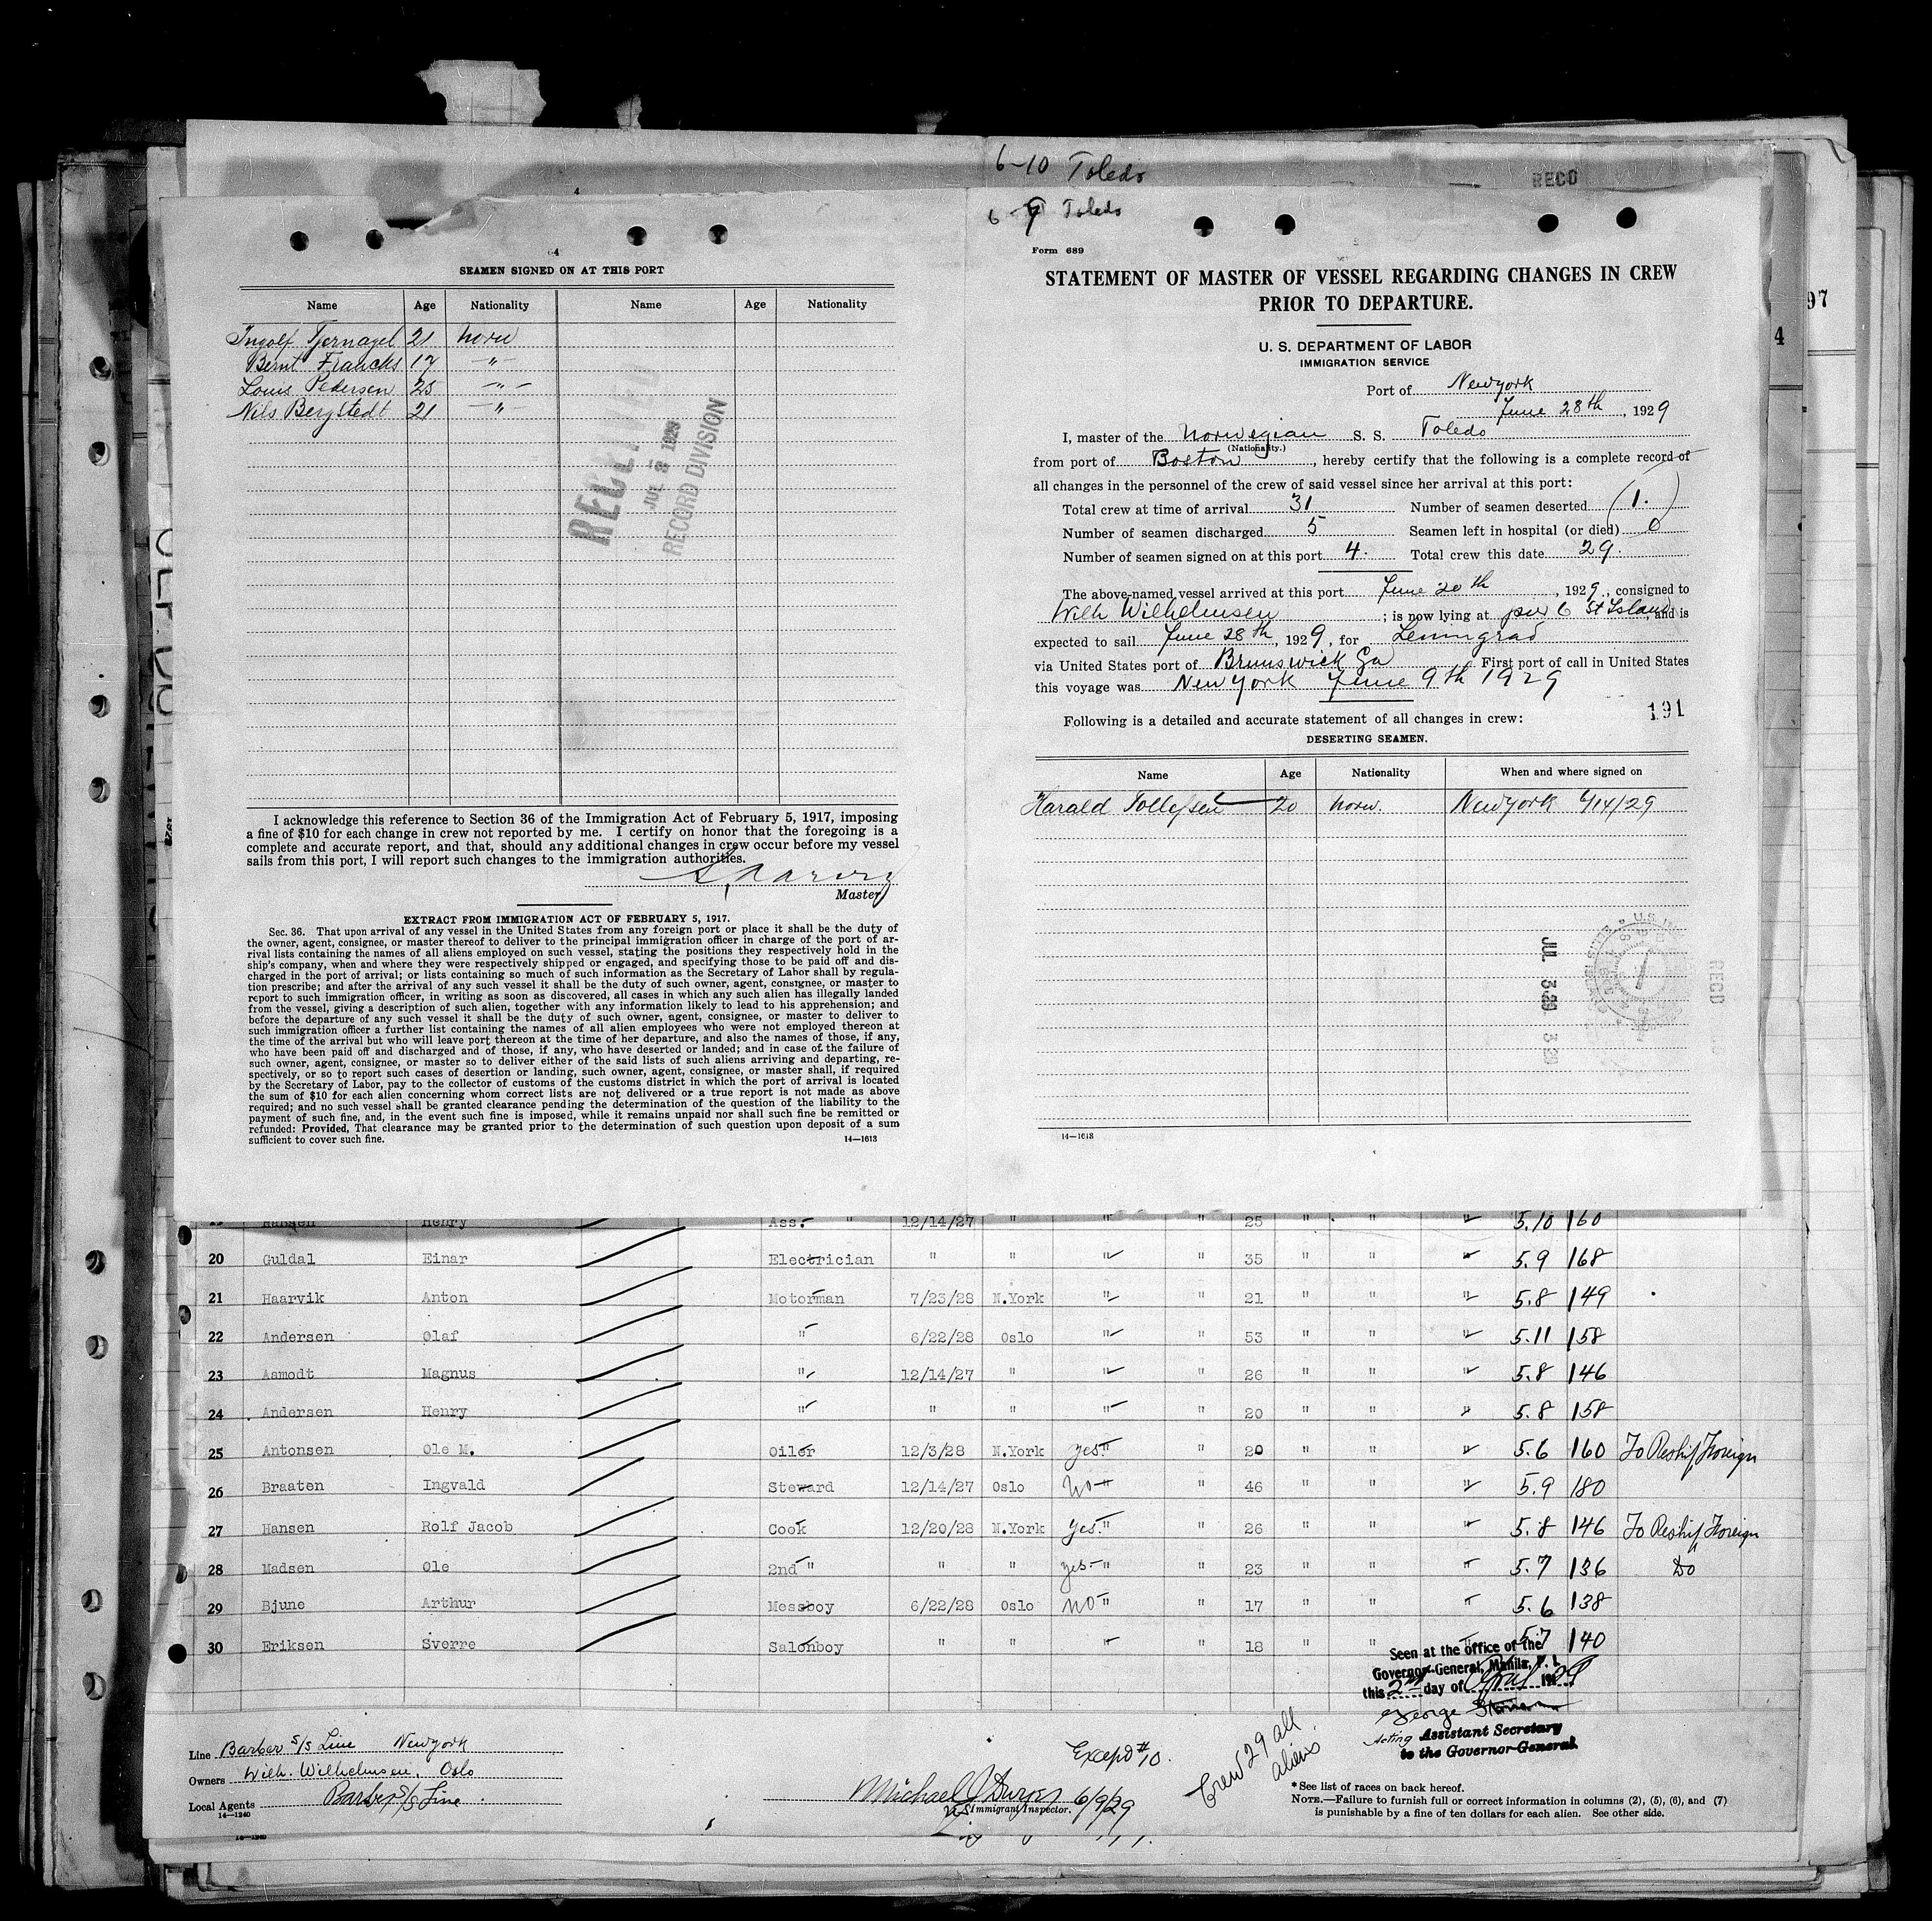 6-10 Toledo
RECD
6-9 Toledo
4
SEAMEN SIGNED ON AT THIS PORT
Name Age Nationality Name Age Nationality
Ingolf Tjernagel 21 Norw
Bernt Francks 17 -"-
Louis Pedersen 23 -"-
Nils Bergstedt 21 -"-
RECEIVED
JUL 2 1929
RECORD DIVISION
I acknowledge this reference to Section 36 of the Immigration Act of February 5, 1917, imposing
a fine of $10 for each change in crew not reported by me. I certify on honor that the foregoing is a
complete and accurate report, and that, should any additional changes in crew occur before my vessel
sails from this port, I will report such changes to the immigration authorities.
Master
EXTRACT FROM IMMIGRATION ACT OF FEBRUARY 5, 1917.
Sec. 36. That upon arrival of any vessel in the United States from any foreign port or place it shall be the duty of
the owner, agent, consignee, or master thereof to deliver to the principal immigration officer in charge of the port of ar-
rival lists containing the names of all aliens employed on such vessel, stating the positions they respectively hold in the
ship's company, when and where they were respectively shipped or engaged, and specifying those to be paid off and dis-
charged in the port of arrival; or lists containing so much of such information as the Secretary of Labor shall by regula-
tion prescribe; and after the arrival of any such vessel it shall be the duty of such owner, agent, consignee, or master to
report to such immigration officer, in writing as soon as discovered, all cases in which any such alien has illegally landed
from the vessel, giving a description of such alien, together with any information likely to lead to his apprehension; and
before the departure of any such vessel it shall be the duty of such owner, agent, consignee, or master to deliver to
such immigration officer a further list containing the names of all alien employees who were not employed thereon at
the time of the arrival but who will leave port thereon at the time of her departure, and also the names of those, if any,
who have been paid off and discharged and of those, if any, who have deserted or landed; and in case of the failure of
such owner, agent, consignee, or master so to deliver either of the said lists of such aliens arriving and departing, re-
spectively, or so to report such cases of desertion or landing, such owner, agent, consignee, or master shall, if required
by the Secretary of Labor, pay to the collector of customs of the customs district in which the port of arrival is located
the sum of $10 for each alien concerning whom correct lists are not delivered or a true report is not made as above
required; and no such vessel shall be granted clearance pending the determination of the question of the liability to the
payment of such fine, and, in the event such fine is imposed, while it remains unpaid nor shall such fine be remitted or
refunded: Provided, That clearance may be granted prior to the determination of such question upon deposit of a sum
sufficient to cover such fine.
14—1613
Form 689
STATEMENT OF MASTER OF VESSEL REGARDING CHANGES IN CREW
PRIOR TO DEPARTURE.
U. S. DEPARTMENT OF LABOR
IMMIGRATION SERVICE
Port of Newyork
June 28th, 1929
I, master of the Norwegian S. S. Toledo
(Nationality.)
from port of Boston, hereby certify that the following is a complete record of
all changes in the personnel of the crew of said vessel since her arrival at this port:
Total crew at time of arrival 31 Number of seamen deserted (1.)
Number of seamen discharged 5 Seamen left in hospital (or died) 0
Number of seamen signed on at this port 4. Total crew this date 29.
The above-named vessel arrived at this port June 20th, 1929, consigned to
Wilh Wilhelmsen; is now lying at pier 6 St Island, and is
expected to sail June 28th, 1929, for Leningrad
via United States port of Brunswick Ga First port of call in United States
this voyage was New York June 9th 1929
191
Following is a detailed and accurate statement of all changes in crew:
DESERTING SEAMEN.
Name Age Nationality When and where signed on
Harald Tollefsen 20 Norw. Newyork 6/14/29
JUL 3 29
RECD
14—1613
97
4
19 Hansen Henry Ass. " 12/14/27 " " " 25 " " " 5.10 160
20 Guldal Einar Electrician " " " " 35 " " " 5.9 168
21 Haarvik Anton Motorman 7/23/28 N.York " " 21 " " " 5.8 149
22 Andersen Olaf " 6/22/28 Oslo " " 53 " " " 5.11 158
23 Asmodt Magnus " 12/14/27 " " " 26 " " " 5.8 146
24 Andersen Henry " " " " " 20 " " " 5.8 158
25 Antonsen Ole M. Oiler 12/3/28 N.York yes " " 20 " " " 5.6 160 To Reship Foreign
26 Braaten Ingvald Steward 12/14/27 Oslo No " " 46 " " " 5.9 180
27 Hansen Rolf Jacob Cook 12/20/28 N.York yes " " 26 " " " 5.8 146 To Reship Foreign
28 Madsen Ole 2nd " " " yes " " 23 " " " 5.7 136 Do
29 Bjune Arthur Messboy 6/22/28 Oslo No " " 17 " " " 5.6 138
30 Eriksen Sverre Salonboy " " " " 18 " " " 5.7 140
Seen at the office of the
Governor-General, Manila, P. I.
this 2nd day of April 1929
George
Acting Assistant Secretary
to the Governor-General.
Line Barber S/S Line Newyork
Owners Wilh. Wilhelmsen, Oslo
Local Agents Barber S/S Line.
14—1240
Except #10.
Crew 29 all aliens
Michael J 6/9/29
Immigrant Inspector.
*See list of races on back hereof.
NOTE.—Failure to furnish full or correct information in columns (2), (5), (6), and (7)
is punishable by a fine of ten dollars for each alien. See other side.